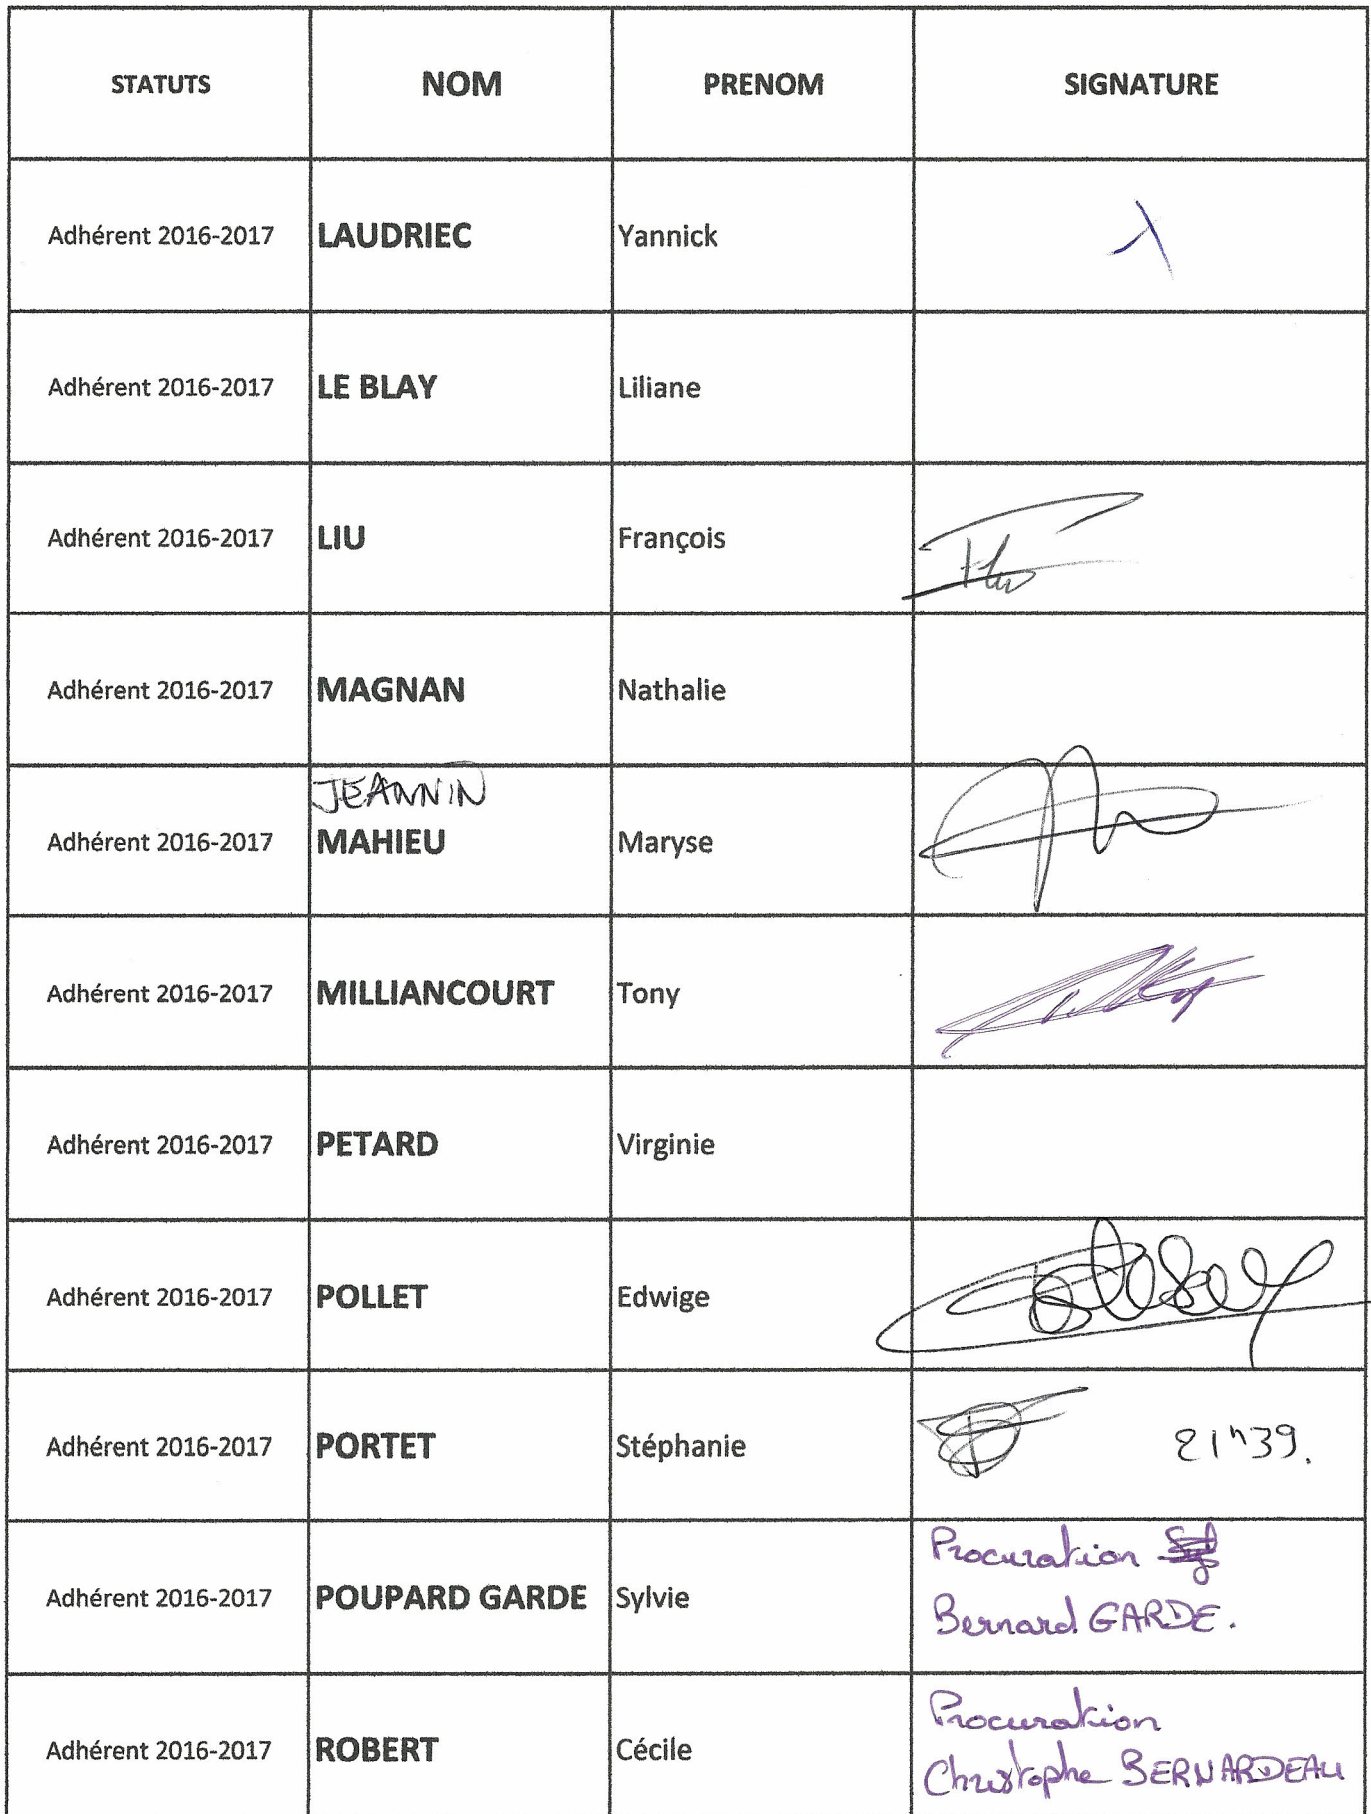 STATUTS NOM PRENOM SIGNATURE
Adhérent 2016-2017 LAUDRIEC Yannick
Adhérent 2016-2017 LE BLAY Liliane
Adhérent 2016-2017 LIU François
Adhérent 2016-2017 MAGNAN Nathalie
JEANNIN
Adhérent 2016-2017 MAHIEU Maryse
Adhérent 2016-2017 MILLIANCOURT Tony
Adhérent 2016-2017 PETARD Virginie
Adhérent 2016-2017 POLLET Edwige
Adhérent 2016-2017 PORTET Stéphanie 21h39.
Procuration
Adhérent 2016-2017 POUPARD GARDE Sylvie
Bernard GARDE.
Procuration
Adhérent 2016-2017 ROBERT Cécile
Christophe BERNARDEAU